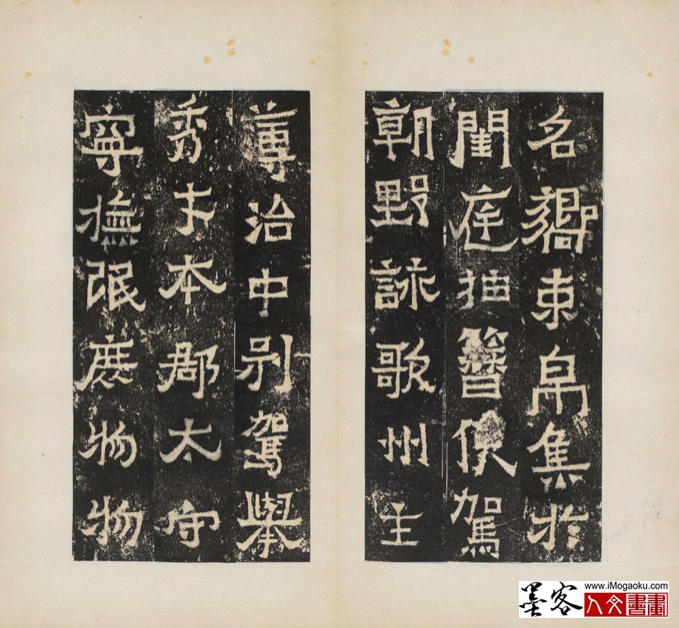 名嚮束帛集於
閨庭抽簪俟駕
朝野詠歌州主
薄治中别駕舉
秀才本郡太守
寧撫氓庶物物
www.iMogaoku.com
墨客 人文書畫